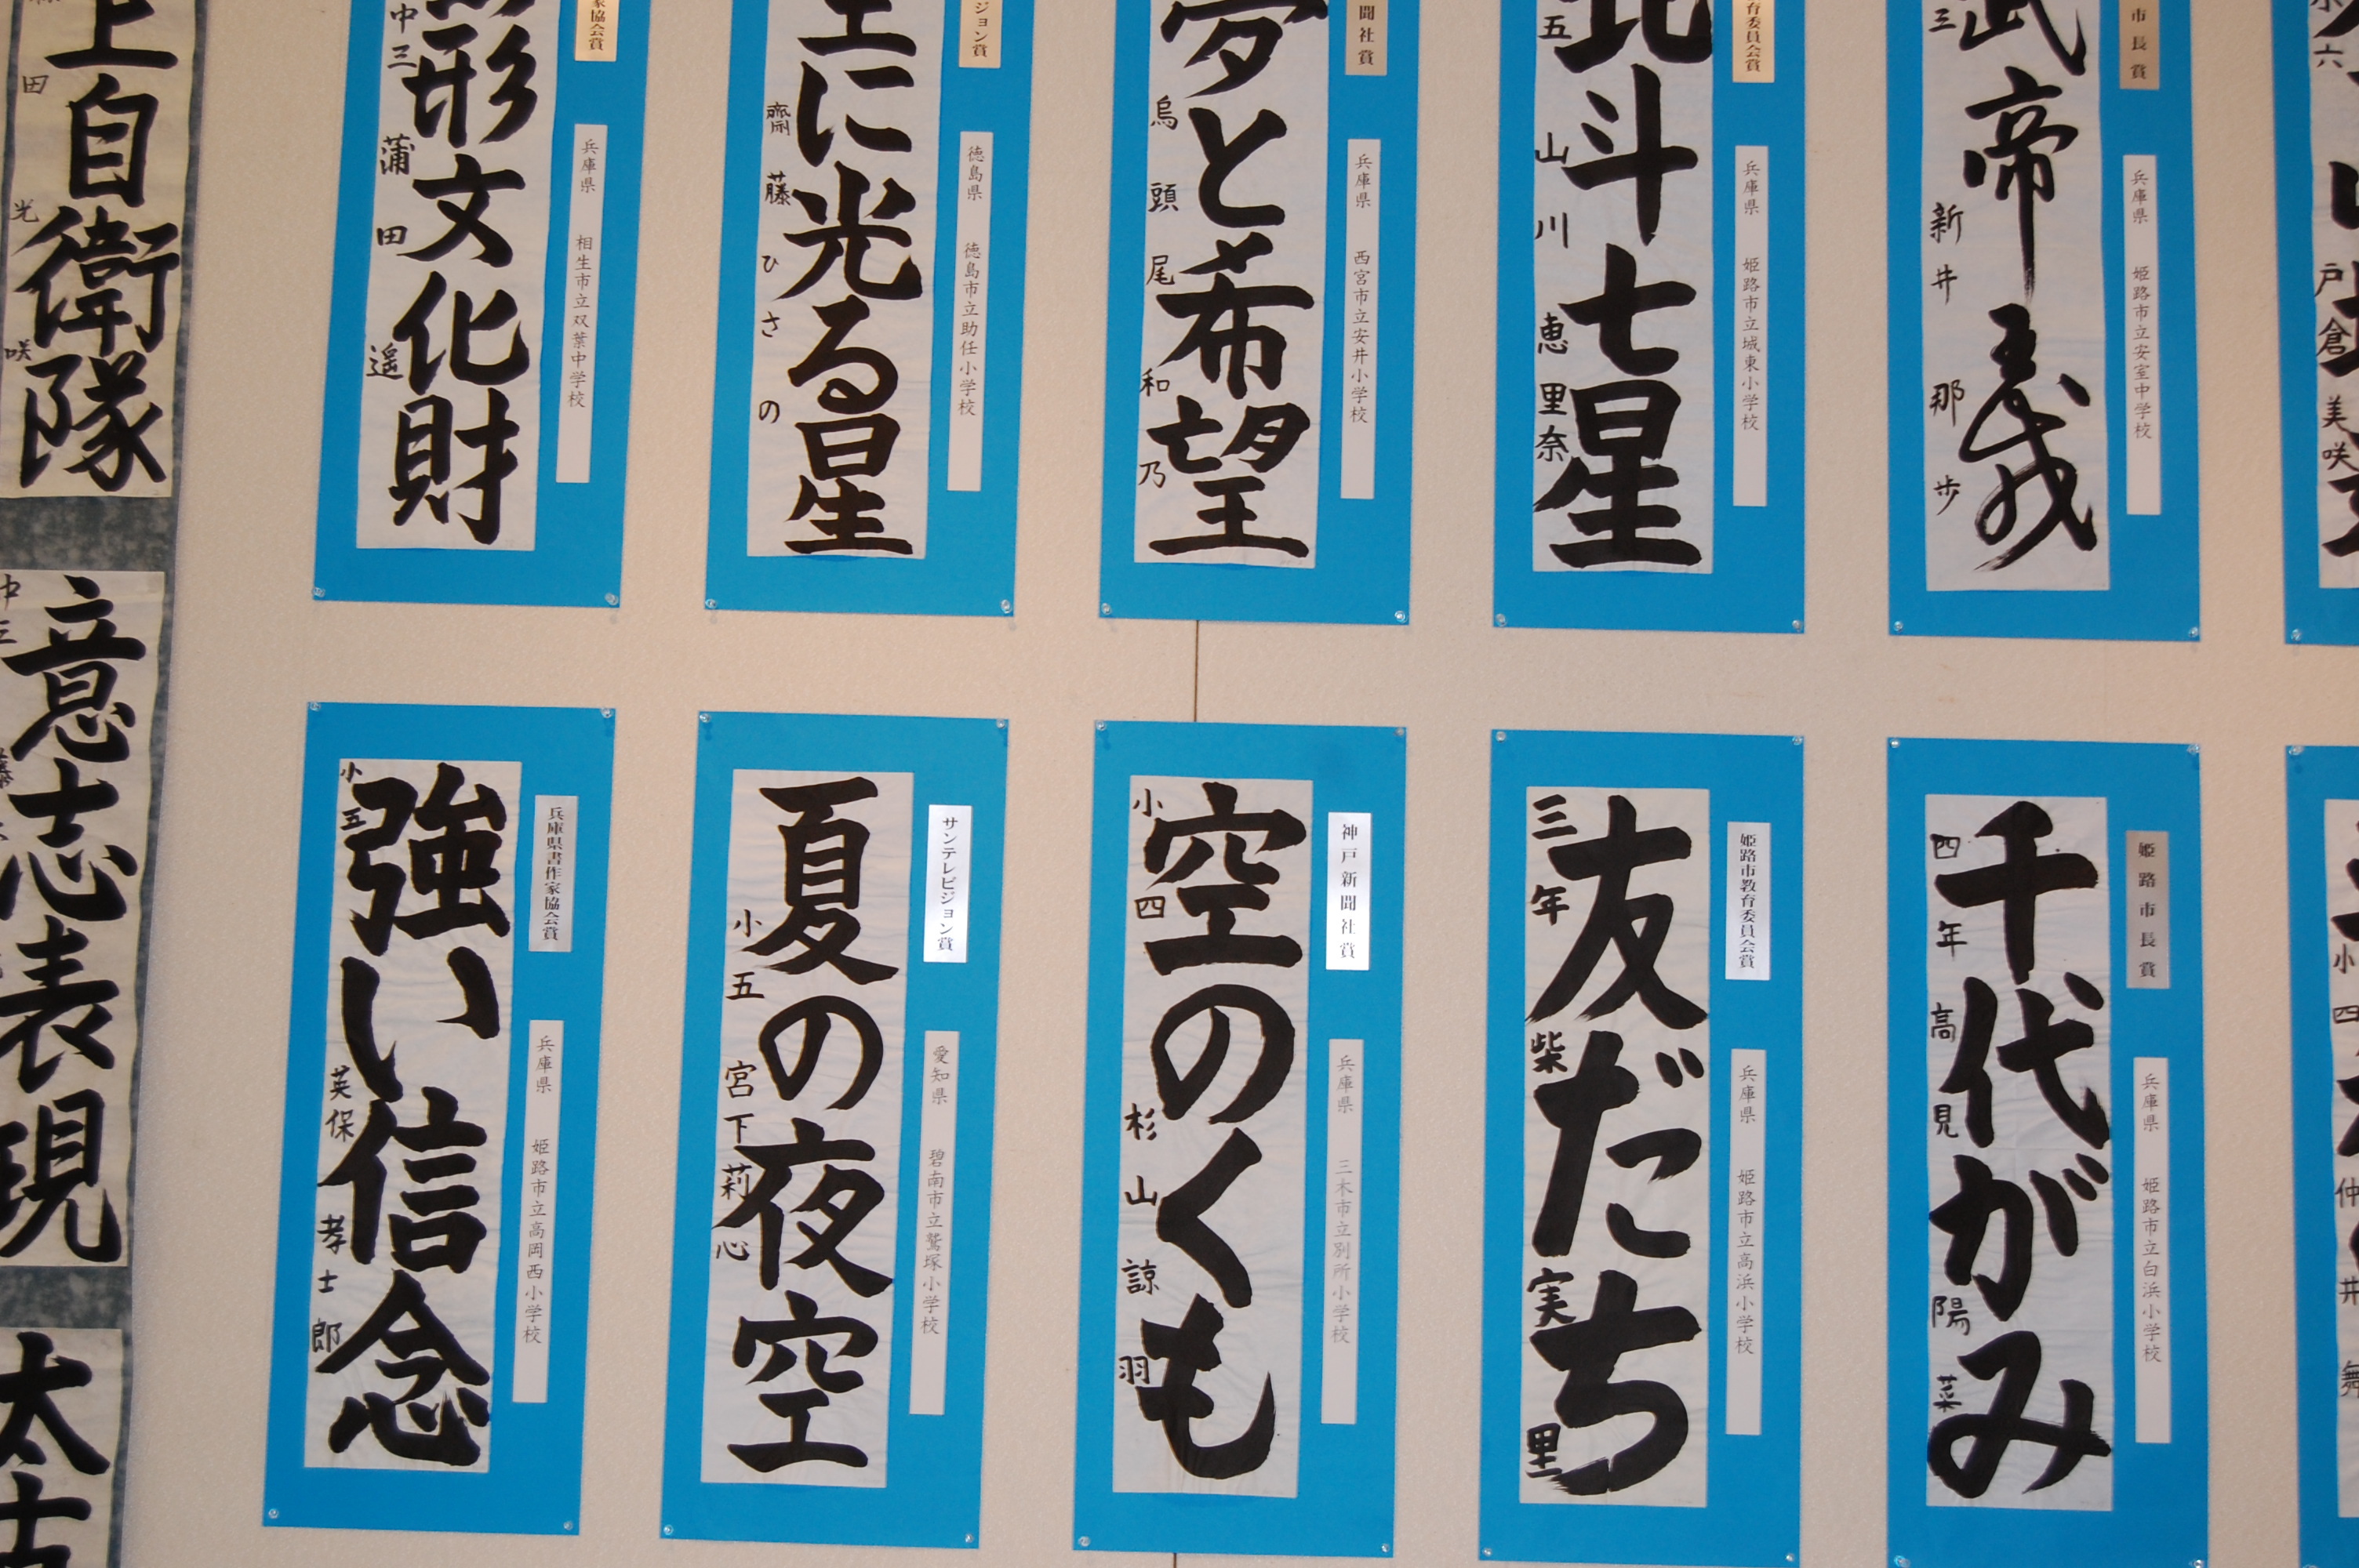 市長賞
兵庫県 姫路市立安室中学校
武帝義
三 新井那歩
育委員会賞
兵庫県 姫路市立城東小学校
北斗七星
五 山川恵里奈
聞社賞
兵庫県 西宮市立安井小学校
夢と希望
烏頭尾和乃
ジョン賞
徳島県 徳島市立助任小学校
に光る星
齋藤ひさの
家協会賞
兵庫県 相生市立双葉中学校
形文化財
中三 蒲田遥
上自衛隊
田光咲
六 戸倉美咲
姫路市長賞
兵庫県 姫路市立白浜小学校
千代がみ
四年 高見陽菜
姫路市教育委員会賞
兵庫県 姫路市立高浜小学校
友だち
三年 柴実里
神戸新聞社賞
兵庫県 三木市立別所小学校
空のくも
小四 杉山諒羽
サンテレビジョン賞
愛知県 碧南市立鷲塚小学校
夏の夜空
小五 宮下莉心
兵庫県書作家協会賞
兵庫県 姫路市立高岡西小学校
強い信念
小五 英保孝士郎
意志表現
中三
太古
小四 仲井舞